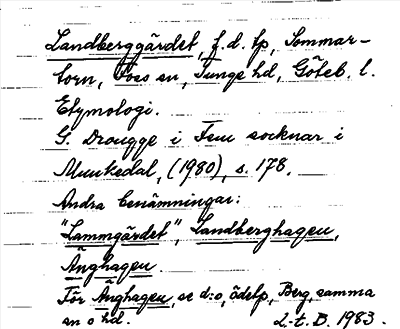 Landberggärdet, f.d. tp, Sommar-
torn, Foss sn, Tunge hd, Göteb. l.
Etymologi.
G. Drougge i Fem socknar i
Munkedal, (1980), s. 178.
Andra benämningar:
"Lammgärdet", Landberghagen,
Änghagen.
För Änghagen, se d:o, ödelp, Berg, samma
sn o hd. L-t. B. 1983.